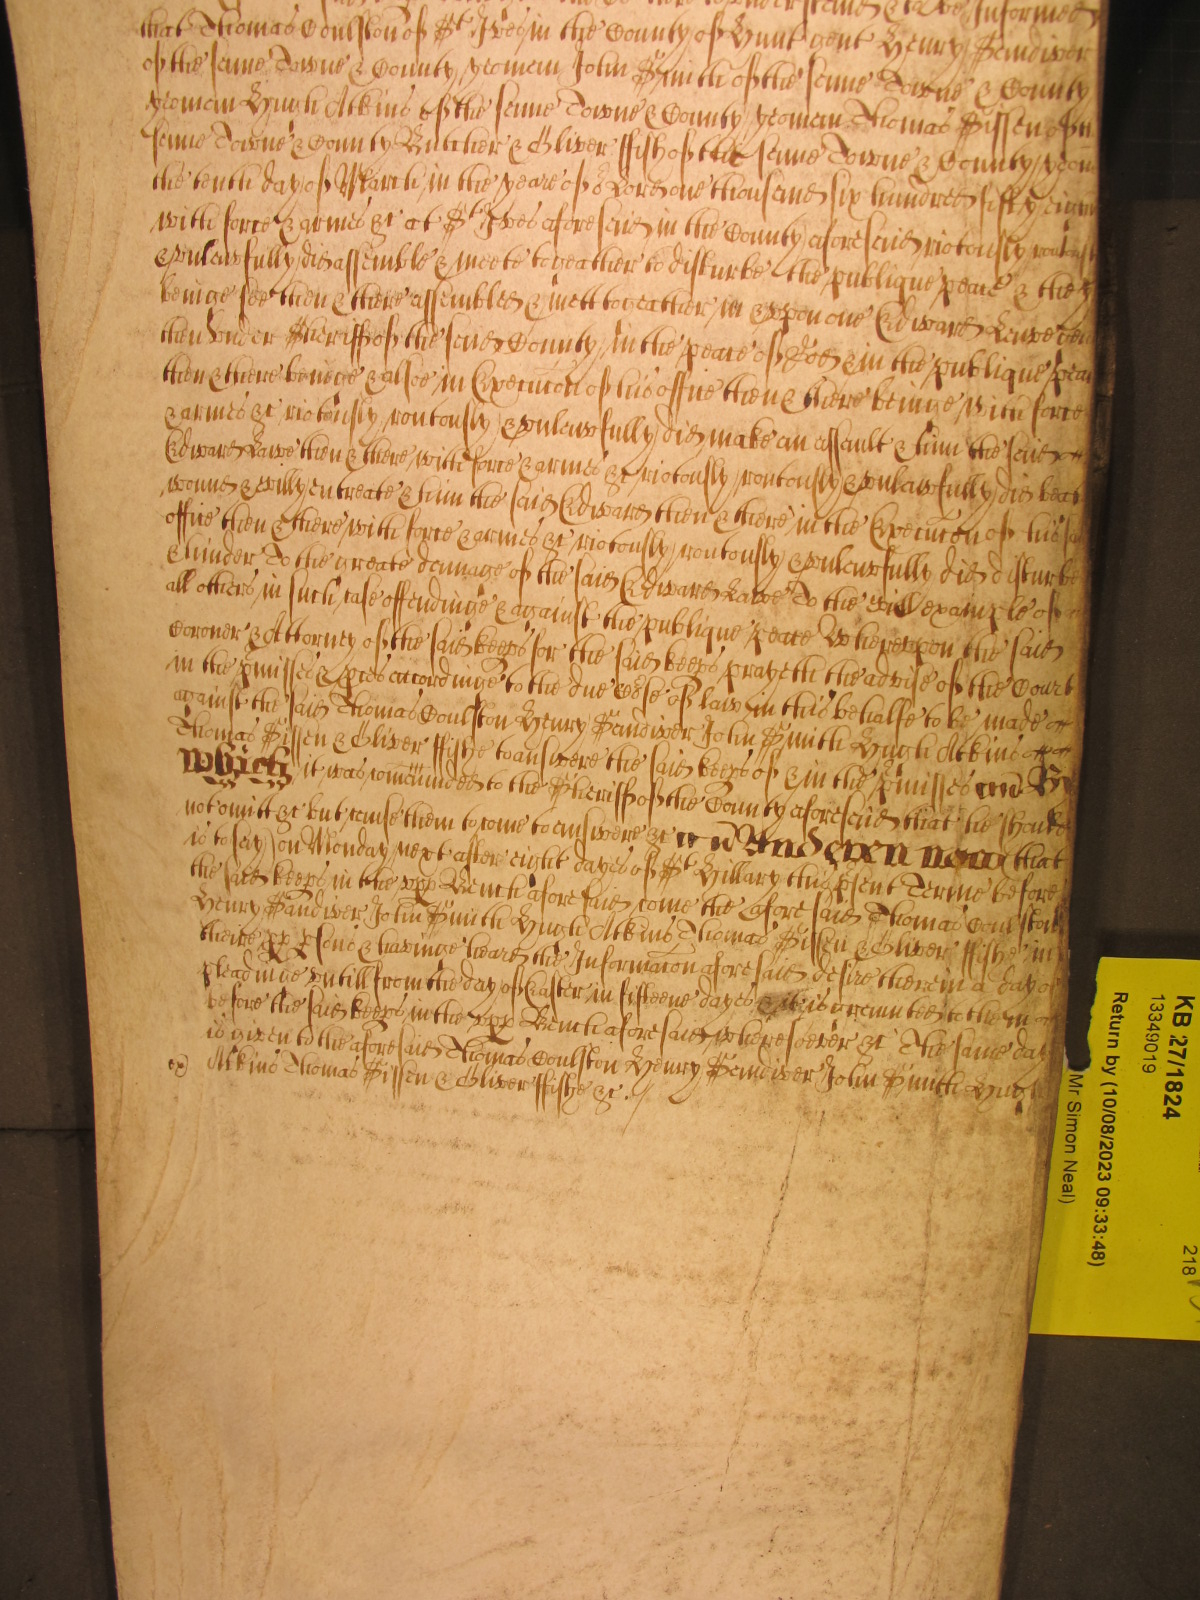 to understand & to be Informed
that Thomas Coulston of St Ives in the County of Hunt gent Henry Sandiver
of the same Towne & County yeoman John Smith of the same Towne & County
yeoman Hugh Atkins of the same Towne & County yeoman Thomas Sissen of
same Towne & County Butcher & Oliver ffishe of the same Towne & County yeom
the tenth day of March in the yeare of or Lord one thousand six hundred fifty eight
with force & armes &c at St Ives aforesaid in the County aforesaid riotously routously
& unlawfully did assemble & meete togeather to disturbe the publique peace & they
beinge soe then & there assembled & mett togeather in & upon one Edward Lawe
then under Sheriff of the said County in the peace of God & in the publique peace
then & there beinge & alsoe in Execucon of his office then & there beinge with force
& armes &c riotously routously & unlawfully did make an assault & him the said
Edward Lawe then & there with force & armes &c riotously routously & unlawfully did beat
wound & evilly entreate & him the said Edward then & there in the Execucon of his said
office then & there with force & armes &c riotously routously & unlawfully did disturbe
& hinder To the greate damage of the said Edward Lawe To the evil example of
all others in such case offendinge & against the publique peace Whereupon the said
Coroner & Attorney of the said keeps for the said keeps prayeth the advise of the Court
in the pmisses & pces accordinge to the due course of law in this behalfe to be made
against the said Thomas Coulston Henry Sandiver John Smith Hugh Atkins
Thomas Sissen & Oliver ffishe to answere the said keeps of & in the pmisses
Which it was comaunded to the Sheriff of the County aforesaid that he should
not omitt &c but cause them to come to answere &c And even now that
is to say on Monday next after eight dayes of St Hillary this psent Terme before
the said keeps in the upp Bench aforesaid come the aforesaid Thomas Coulston
Henry Sandiver John Smith Hugh Atkins Thomas Sissen & Oliver ffishe in
theire pp psons & havinge heard the Informacon aforesaid desire therein a day of
pleadinge untill from the day of Easter in fifteene dayes & it is graunted to them
before the said keeps in the upp Bench aforesaid wheresoever &c The same day
is given to the aforesaid Thomas Coulston Henry Sandiver John Smith Hugh
Atkins Thomas Sissen & Oliver ffishe &c
KB 27/1824
13349019
Return by (10/08/2023 09:33:48)
Mr Simon Neal)
218